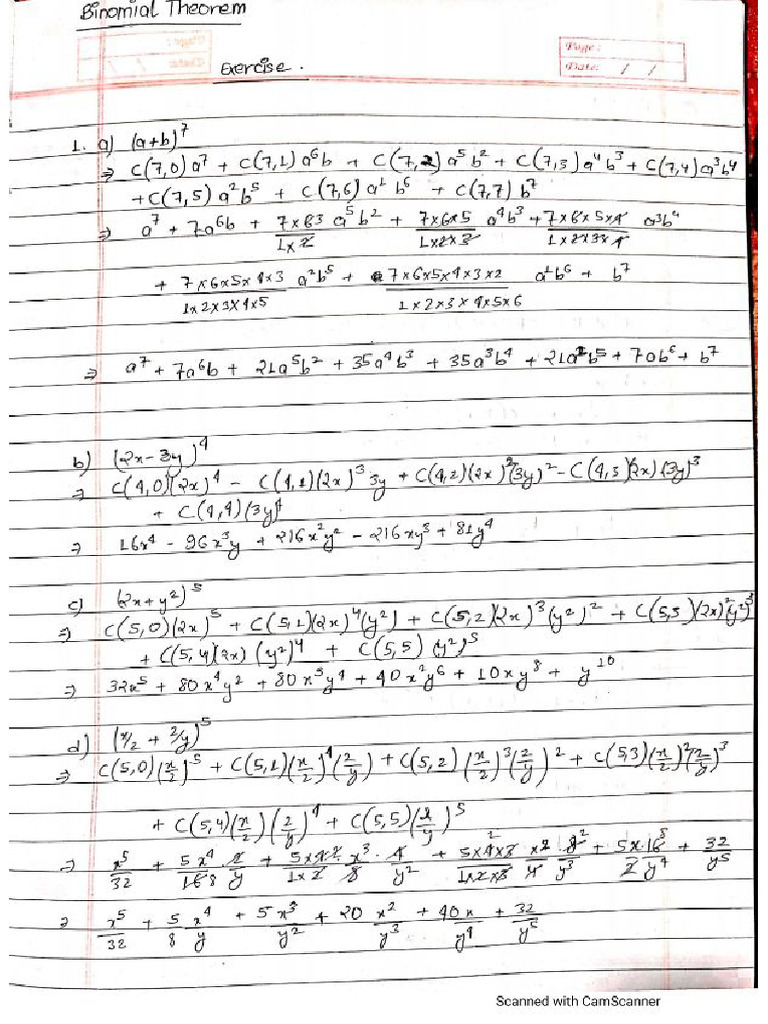 Binomial Theorem
Page :
Date: / /
Exercise.
1. a) (a+b)^7
⇒ C(7,0)a^7 + C(7,1)a^6b + C(7,2)a^5b^2 + C(7,3)a^4b^3 + C(7,4)a^3b^4
+ C(7,5)a^2b^5 + C(7,6)a^1b^6 + C(7,7)b^7
⇒ a^7 + 7a^6b + 7×6 3/1×2 a^5b^2 + 7×6×5/1×2×3 a^4b^3 + 7×6×5×4/1×2×3×4 a^3b^4
+ 7×6×5×4×3/1×2×3×4×5 a^2b^5 + 7×6×5×4×3×2/1×2×3×4×5×6 a^1b^6 + b^7
⇒ a^7 + 7a^6b + 21a^5b^2 + 35a^4b^3 + 35a^3b^4 + 21a^2b^5 + 7ab^6 + b^7
b) (2x-3y)^4
⇒ C(4,0)(2x)^4 - C(4,1)(2x)^3 3y + C(4,2)(2x)^2(3y)^2 - C(4,3)(2x)(3y)^3
+ C(4,4)(3y)^4
⇒ 16x^4 - 96x^3y + 216x^2y^2 - 216xy^3 + 81y^4
c) (2x+y^2)^5
⇒ C(5,0)(2x)^5 + C(5,1)(2x)^4(y^2) + C(5,2)(2x)^3(y^2)^2 + C(5,3)(2x)^2(y^2)^3
+ C(5,4)(2x)(y^2)^4 + C(5,5)(y^2)^5
⇒ 32x^5 + 80x^4y^2 + 80x^3y^4 + 40x^2y^6 + 10xy^8 + y^10
d) (x/2 + 2/y)^5
⇒ C(5,0)(x/2)^5 + C(5,1)(x/2)^4(2/y) + C(5,2)(x/2)^3(2/y)^2 + C(5,3)(x/2)^2(2/y)^3
+ C(5,4)(x/2)(2/y)^4 + C(5,5)(2/y)^5
⇒ x^5/32 + 5x^4/16 8 2/y + 5×4 2/1×2 x^3/8 · 4/y^2 + 5×4×3/1×2×3 x^2/4 8 2/y^3 + 5x·16 8/2y^4 + 32/y^5
⇒ x^5/32 + 5/8 x^4/y + 5x^3/y^2 + 20 x^2/y^3 + 40x/y^4 + 32/y^5
Scanned with CamScanner